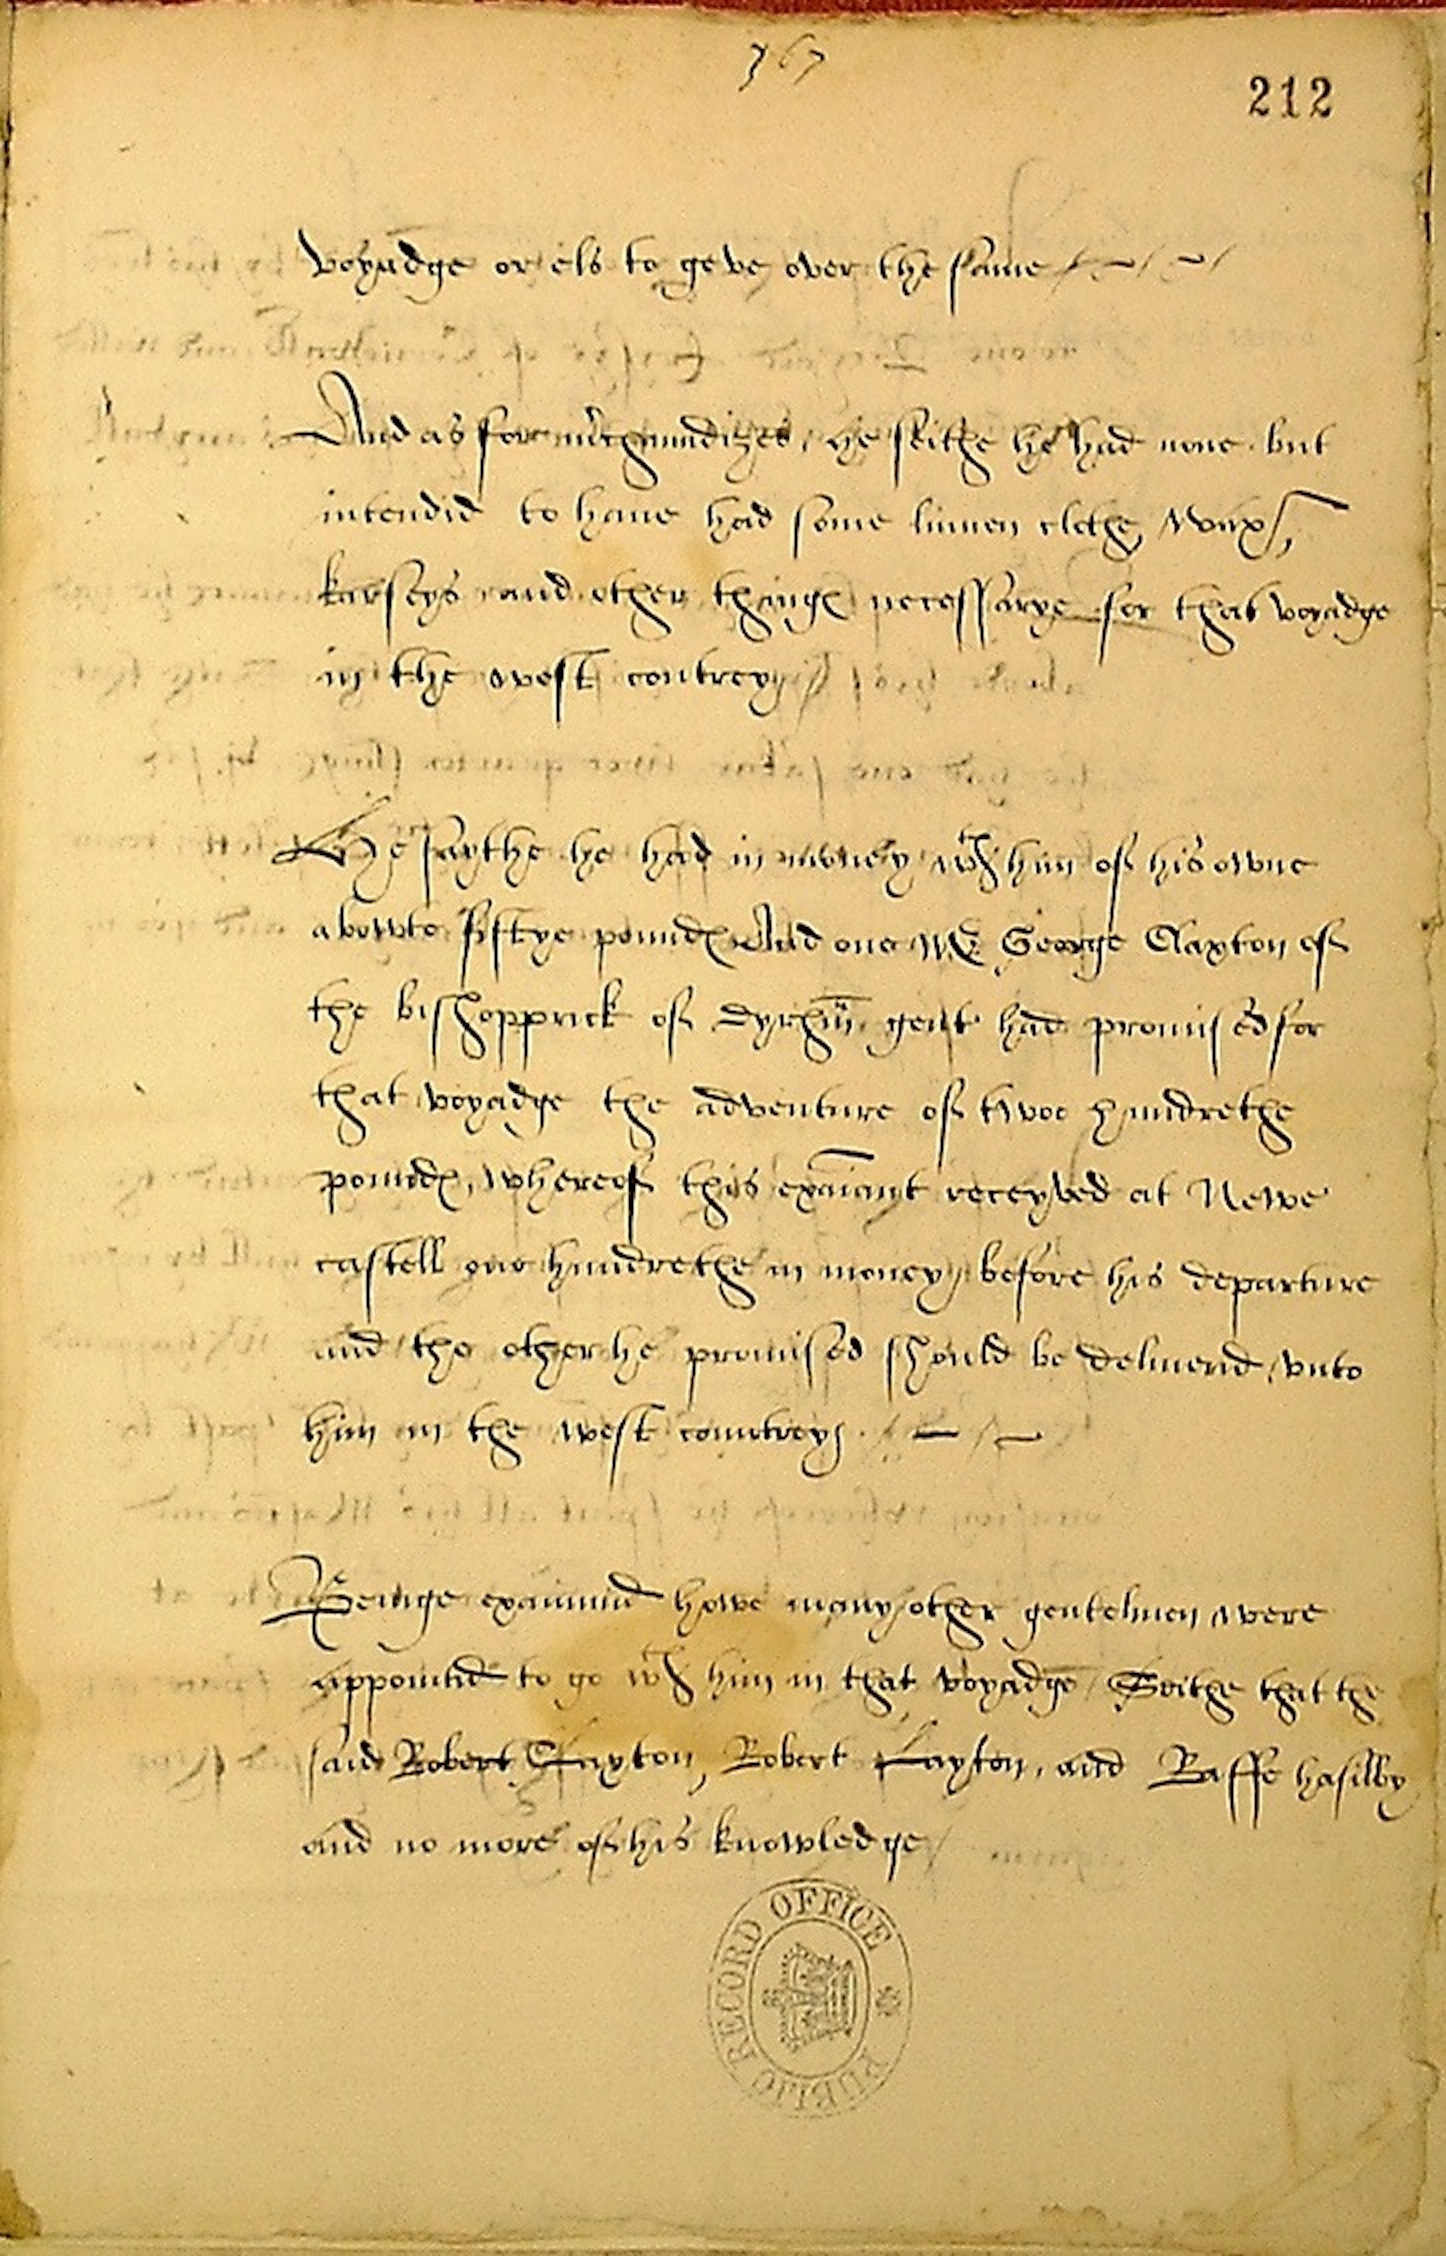 367
212
voyadge or els to geve over the same
And as for m'chaundizes, he seithe he had none but
intendid to haue had some linnen clothe, wax,
karseys and other things necessarye for that voyadge
in the west contrey
He saythe he had in money wth him of his owne
abowte fiftye pounds And one Mr George Claxton of
the bishopprick of Dyrhm gent had promised for
that voyadge the adventure of twoo hundrethe
pounds, whereof this exaiant receyved at Newe
castell one hundrethe in money before his departure
and the other he promised should be deliuerid vnto
him in the west countrey
Beinge examined howe many other gentelmen were
appointid to go wth him in that voyadge Seithe that the
said Robert Claxton, Robert Layton, and Raffe hasilby
and no more of his knowledge
PUBLIC RECORD OFFICE